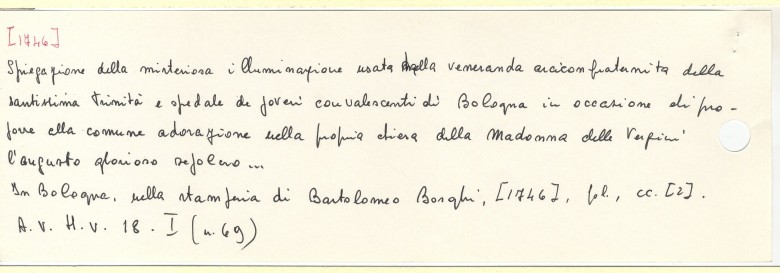 [1746]
Spiegazione della misteriosa illuminazione usata nella veneranda arciconfraternita della
santissima Trinità e spedale de poveri convalescenti di Bologna in occasione di pro-
porre alla comune adorazione nella propria chiesa della Madonna delle Vergini
l'augusto glorioso sepolcro...
In Bologna, nella stamperia di Bartolomeo Borghi, [1746], fol., cc. [2].
A.V. H.V. 18. I (n. 69)